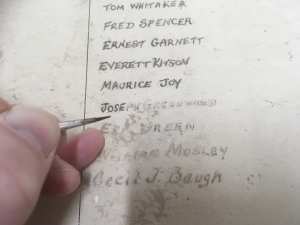 TOM WHITAKER
FRED SPENCER
ERNEST GARNETT
EVERETT KITSON
MAURICE JOY
JOSEPH
GREEN
WILLIAM MOSLEY
Cecil J. Baugh